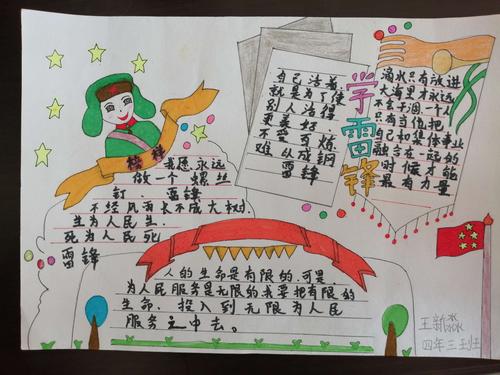 学雷锋
自己活着
就是为了使
别人活得
更美好
不经受炼
难以成钢
雷锋
滴水只有放进
大海里才永远
不会干涸,一个人
只有当他把
自己和集体事业
融合在一起的
时候才能
最有力量
雷锋
我愿永远
做一个螺丝
钉 雷锋
不经风雨长不成大树
生为人民生
死为人民死
雷锋
人的生命是有限的,可是
为人民服务是无限的,我要把有限的
生命,投入到无限为人民
服务之中去。
王新淼
四年三班